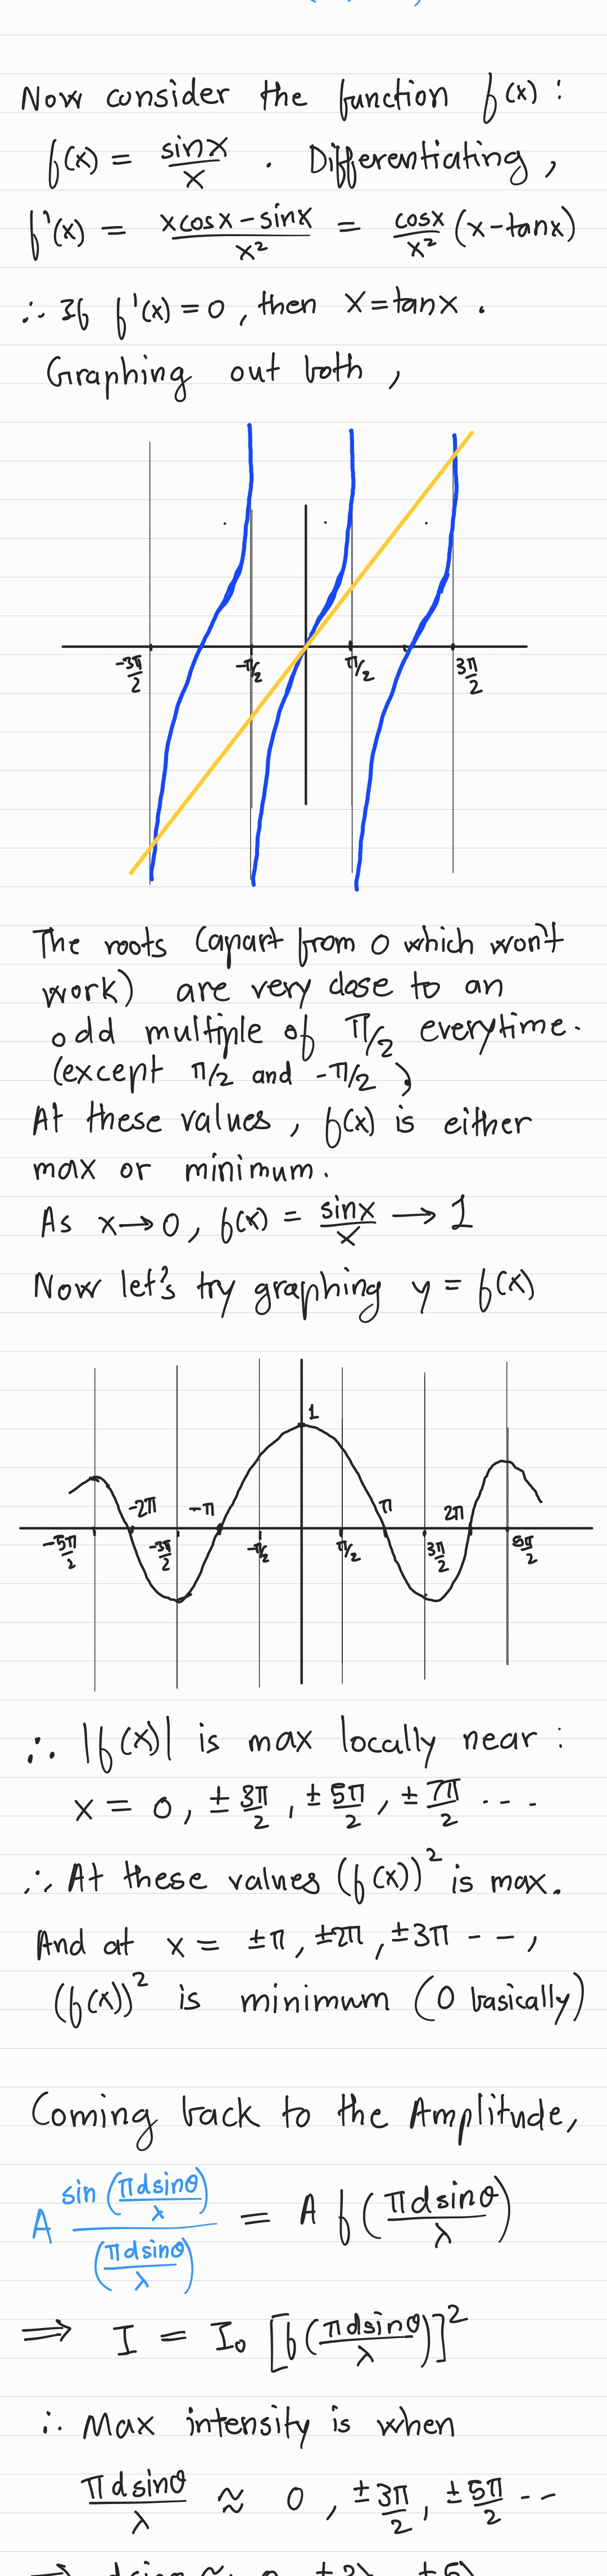 Now consider the function f(x) :
f(x) = sinx/x . Differentiating,
f'(x) = (xcosx - sinx)/x² = cosx/x² (x - tanx)
∴ If f'(x) = 0, then x = tanx .
Graphing out both,
-3π/2 -π/2 π/2 3π/2
The roots (apart from 0 which won't
work) are very close to an
odd multiple of π/2 everytime.
(except π/2 and -π/2)
At these values, f(x) is either
max or minimum.
As x → 0, f(x) = sinx/x → 1
Now let's try graphing y = f(x)
1
-5π/2 -2π -3π/2 -π -π/2 π/2 π 3π/2 2π 5π/2
∴ |f(x)| is max locally near :
x = 0, ± 3π/2, ± 5π/2, ± 7π/2 - - -
∴ At these values (f(x))² is max.
And at x = ±π, ±2π, ±3π - - ,
(f(x))² is minimum (0 basically)
Coming back to the Amplitude,
A sin(πdsinθ/λ)/(πdsinθ/λ) = A f(πdsinθ/λ)
⇒ I = I₀ [f(πdsinθ/λ)]²
∴ Max intensity is when
πdsinθ/λ ≈ 0, ± 3π/2, ± 5π/2 - -